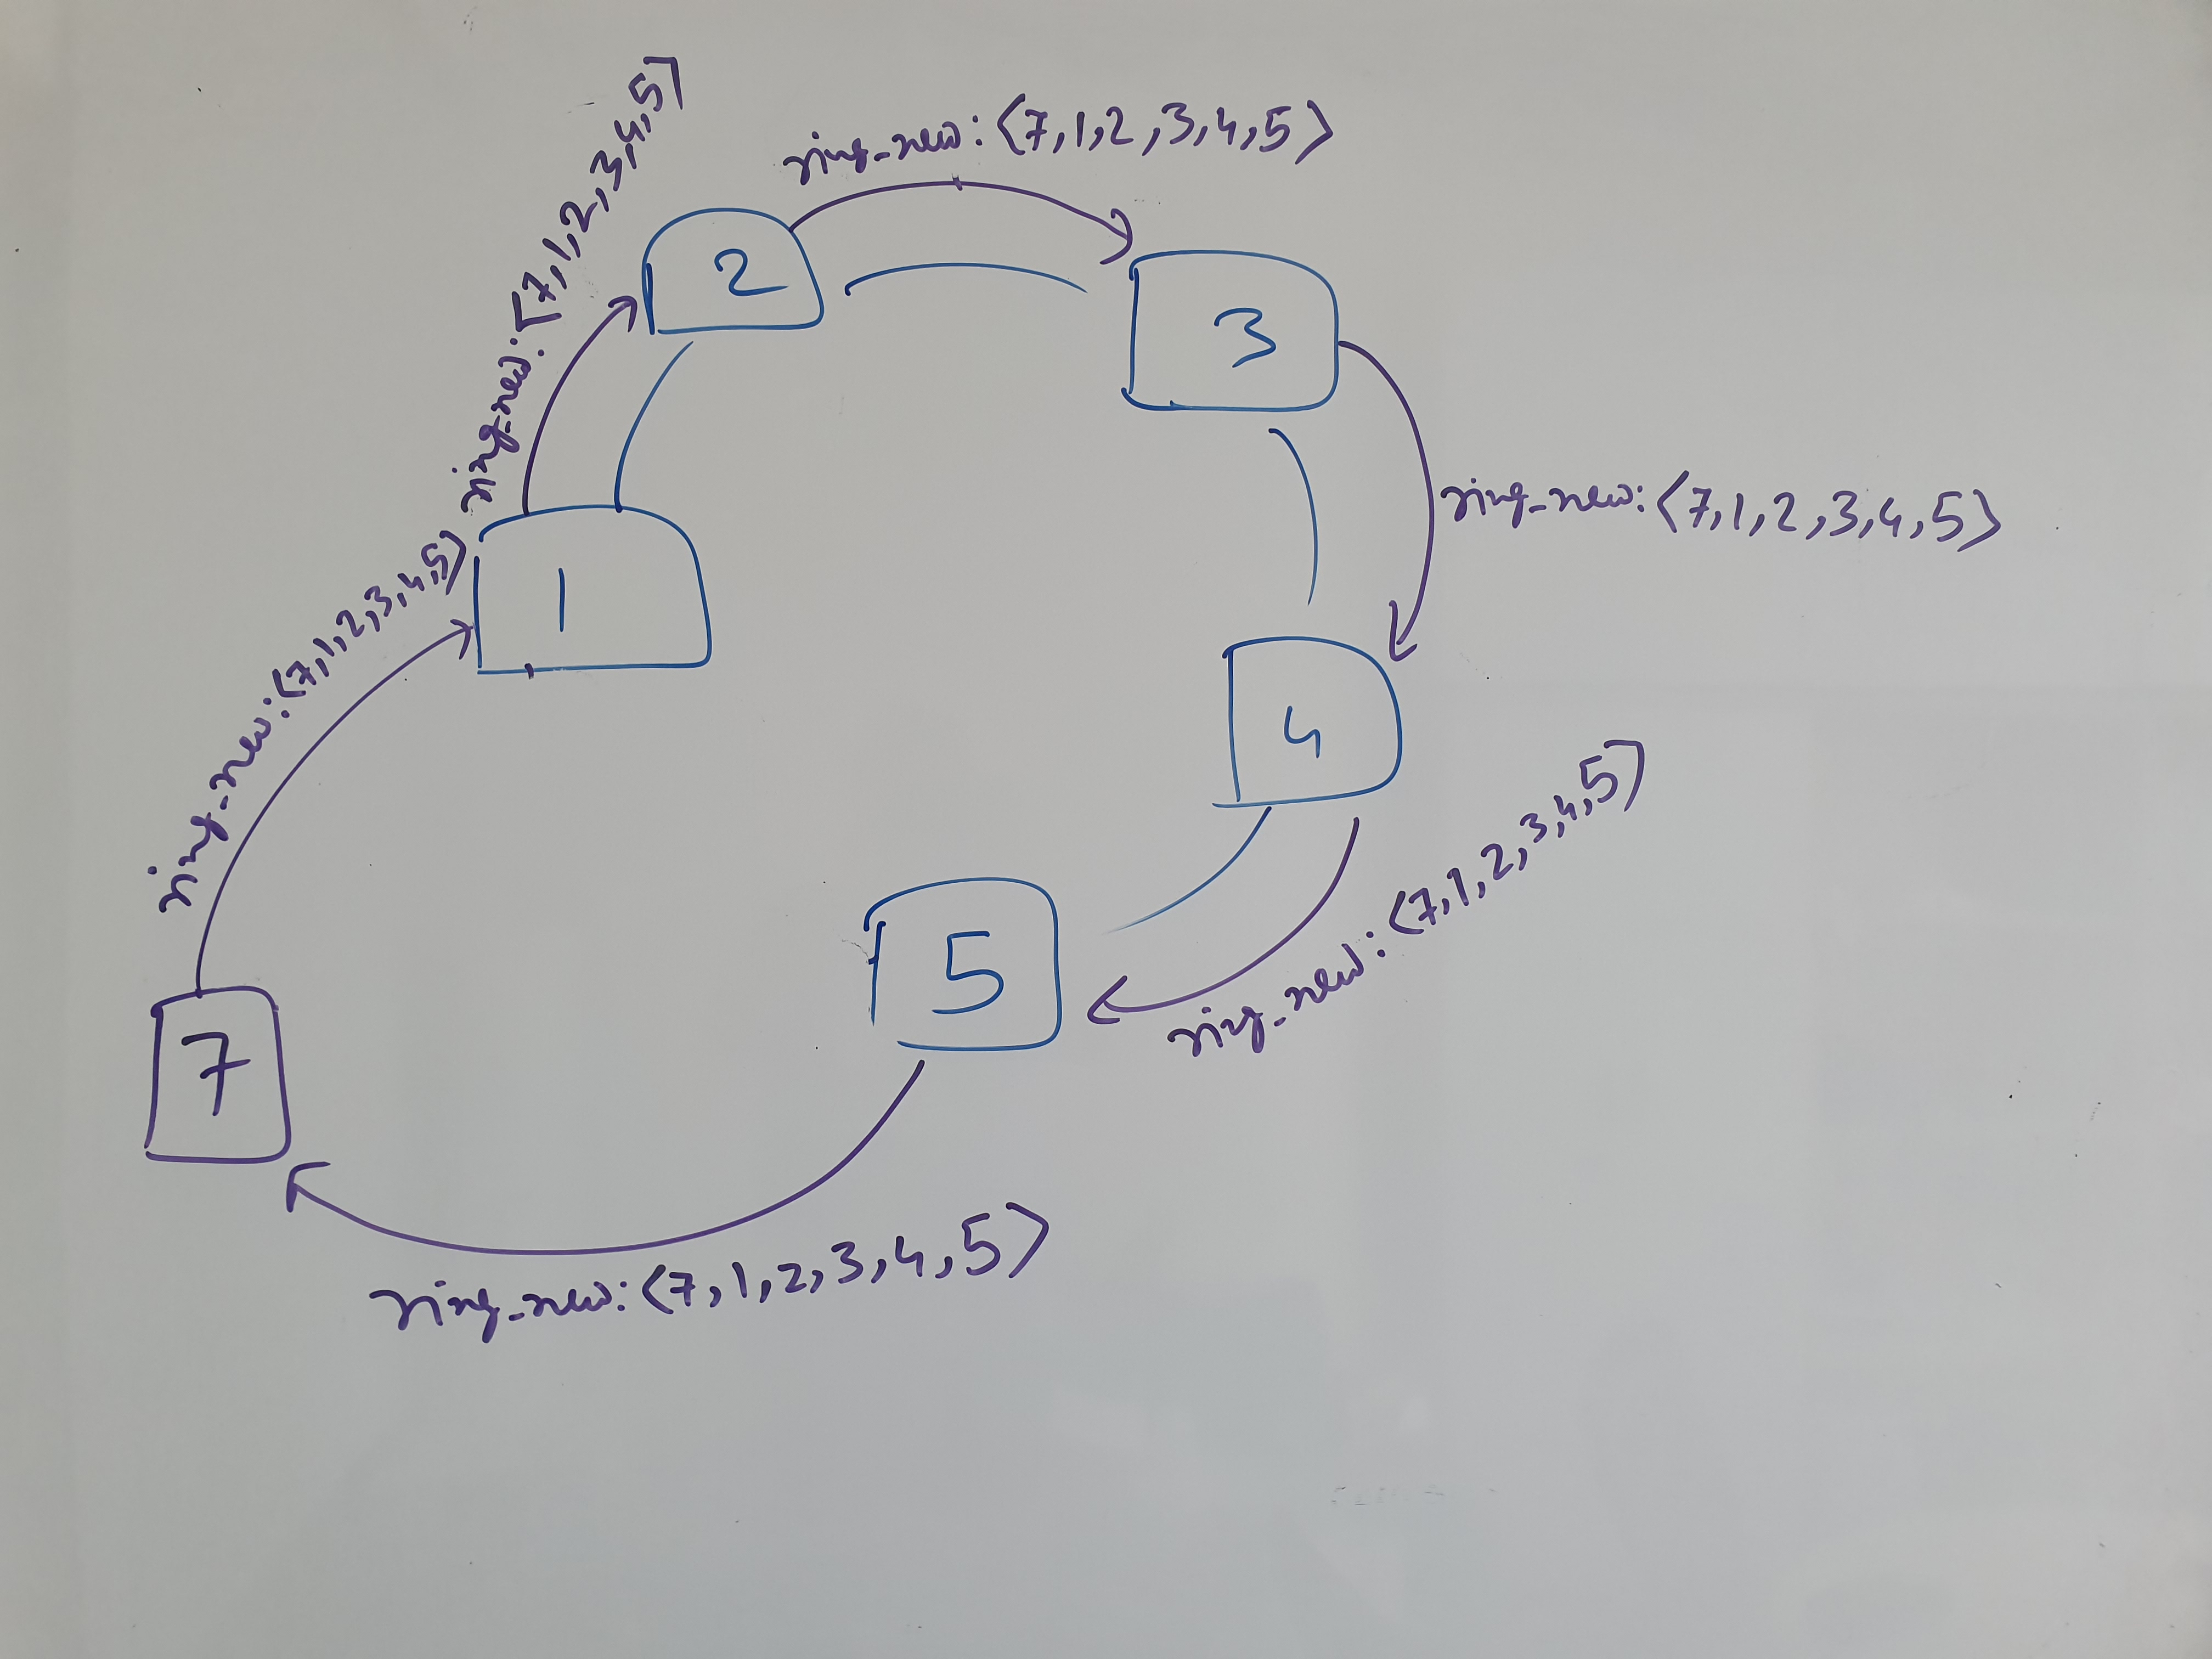 ring_new: [7,1,2,3,4,5]
ring_new: (7,1,2,3,4,5)
2
3
ring_new: (7,1,2,3,4,5)
ring_new: (7,1,2,3,4,5)
1
4
5
ring_new: (7,1,2,3,4,5)
7
ring_new: (7,1,2,3,4,5)